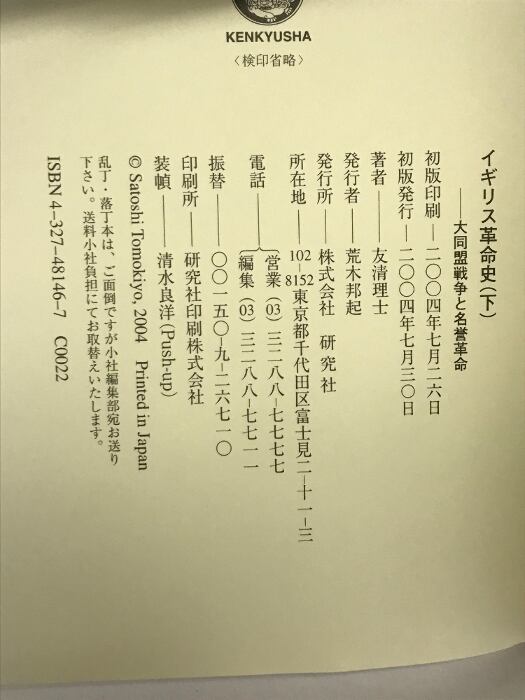 KENKYUSHA
〈検印省略〉
イギリス革命史(下)
——大同盟戦争と名誉革命
初版印刷——二〇〇四年七月二六日
初版発行——二〇〇四年七月三〇日
著者——友清理士
発行者——荒木邦起
発行所——株式会社 研究社
所在地——102-8152東京都千代田区富士見二-十一-三
電話——営業(03)三二八八-七七七七
編集(03)三二八八-七七一一
振替——〇〇一五〇-九-二六七一〇
印刷所——研究社印刷株式会社
装幀——清水良洋(Push-up)
© Satoshi Tomokiyo, 2004 Printed in Japan
乱丁・落丁本は、ご面倒ですが小社編集部宛お送り
下さい。送料小社負担にてお取替えいたします。
ISBN 4-327-48146-7 C0022